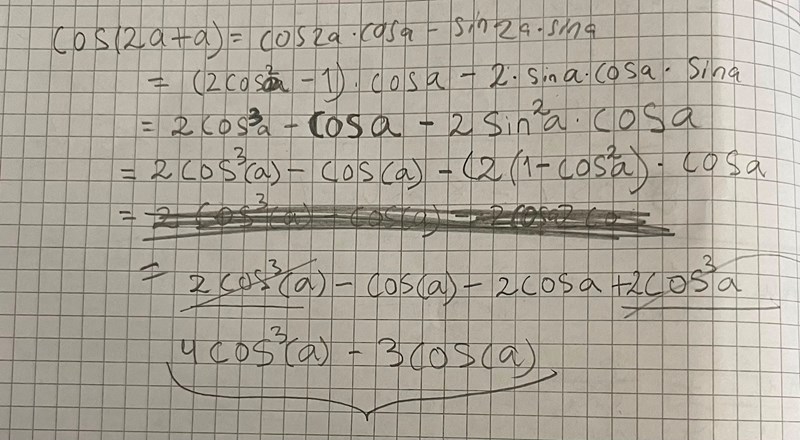 cos(2a+a) = cos2a·cosa - sin2a·sina
= (2cos²a - 1)·cosa - 2·sina·cosa·sina
= 2cos³a - cosa - 2sin²a·cosa
= 2cos³(a) - cos(a) - (2(1-cos²a)·cosa
= 2cos³(a) - cos(a) - 2cosa
= 2cos³(a) - cos(a) - 2cosa + 2cos³a
4cos³(a) - 3cos(a)